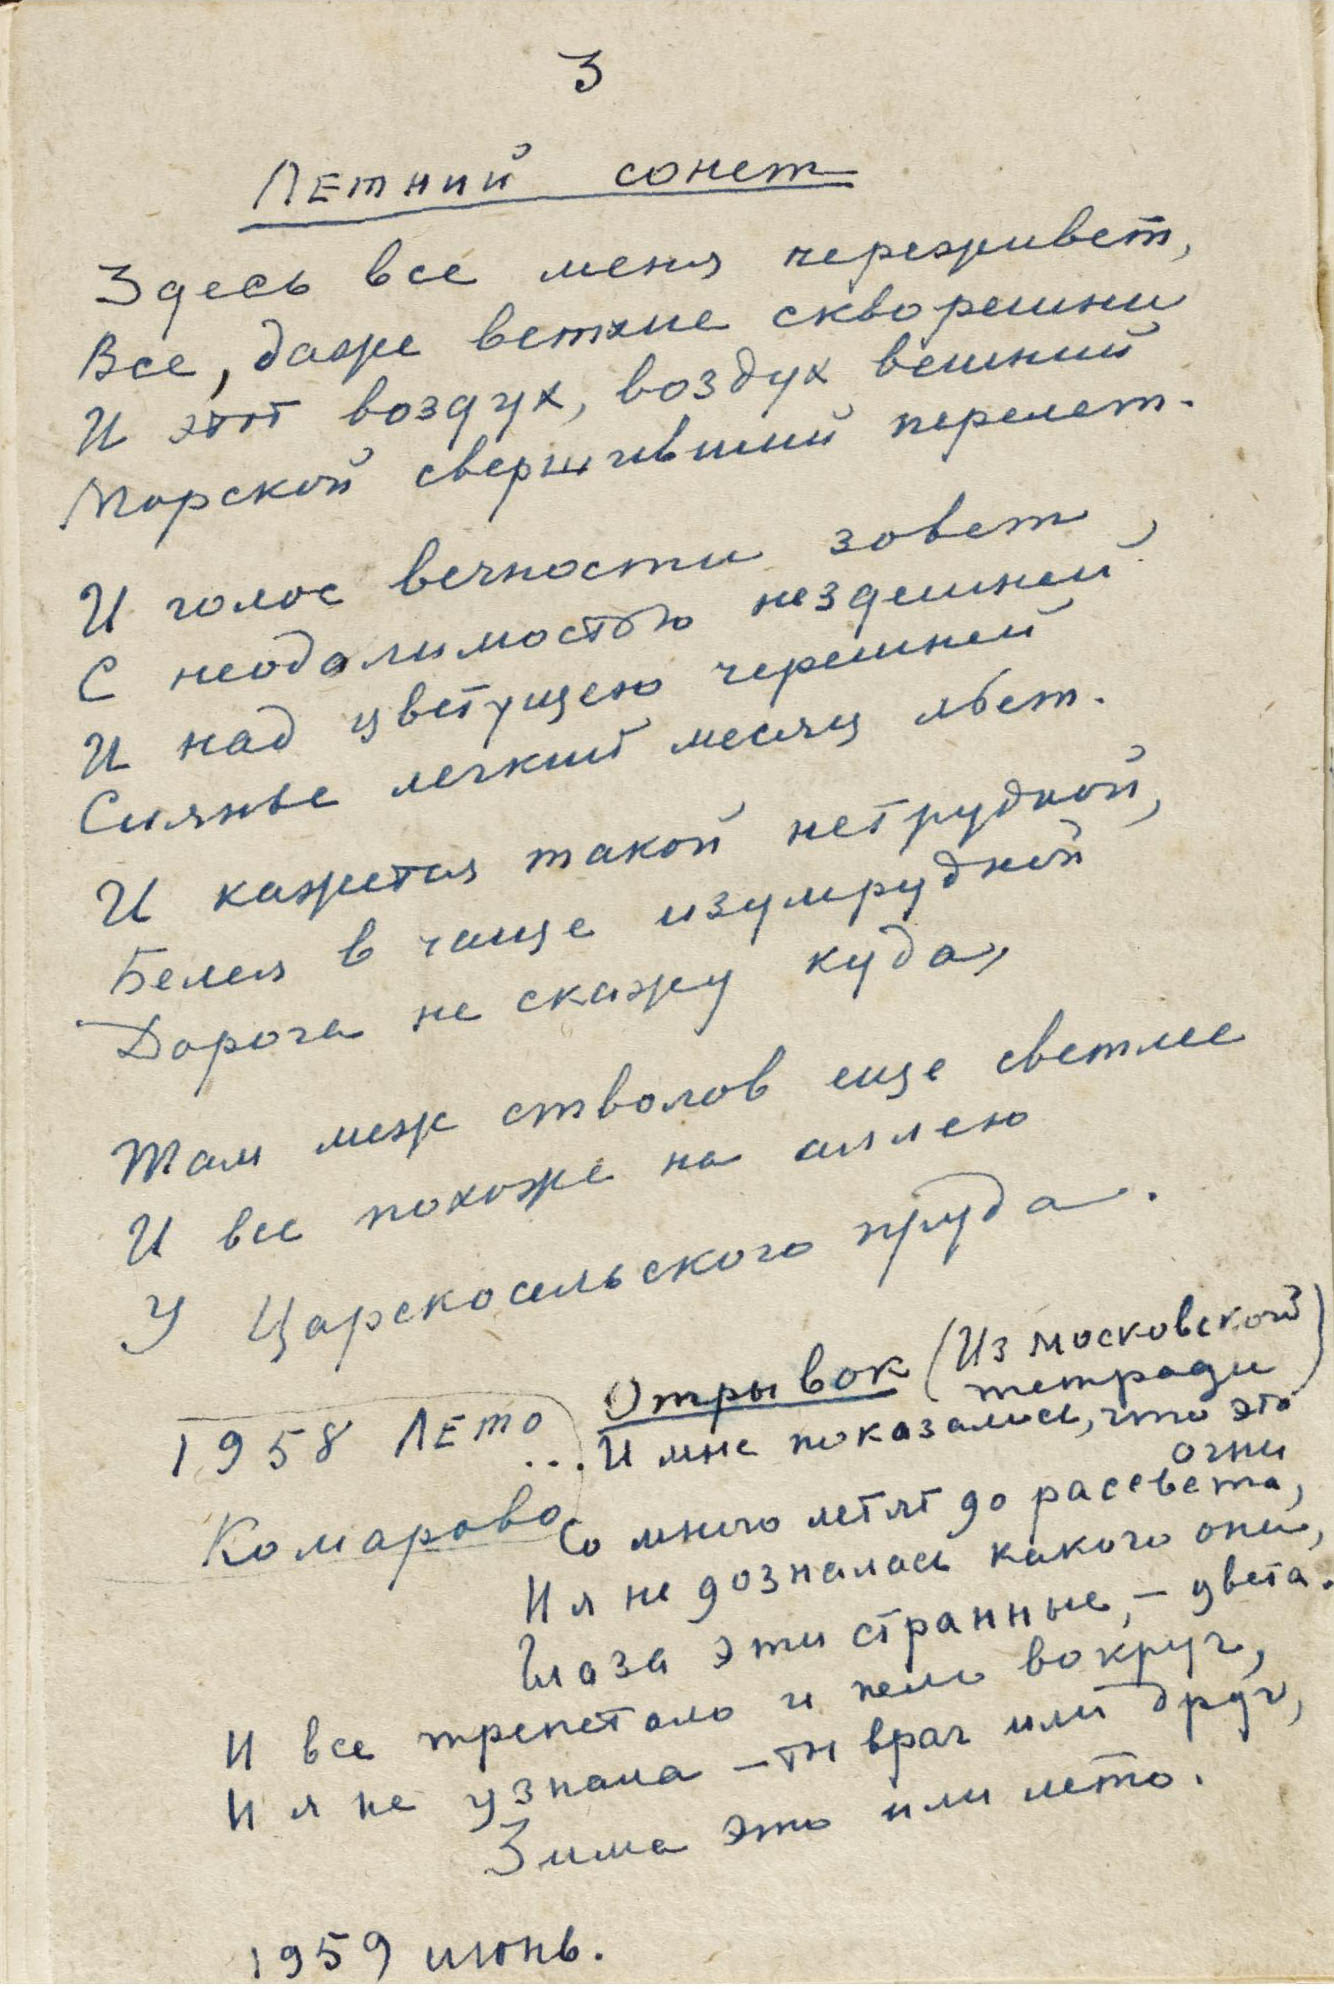 3
Летний сонет
Здесь все меня переживет,
Все, даже ветхие скворешни
И этот воздух, воздух вешний
Морской свершивший перелет.
И голос вечности зовет
С неодолимостью нездешней,
И над цветущею черешней
Сиянье легкий месяц льет.
И кажется такой нетрудной,
Белея в чаще изумрудной
Дорога не скажу куда,
Там меж стволов еще светлее
И все похоже на аллею
У Царскосельского пруда.
1958 Лето
Комарово
Отрывок (Из московской
тетради)
... И мне показалось, что это
огни
Со мною летят до рассвета,
И я не дозналась какого они,
Глаза эти странные, – цвета.
И все трепетало и пело вокруг,
И я не узнала – ты враг или друг,
Зима это или лето.
1959 июнь.